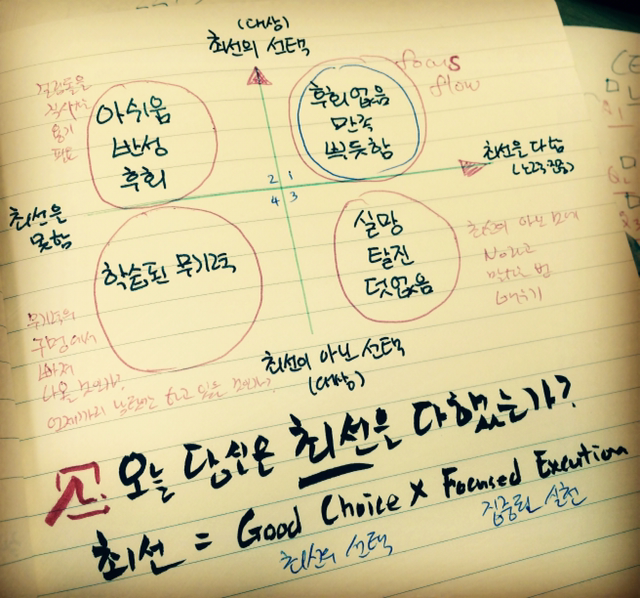 (대상)
최선의 선택
focus
flow
결점들을
직시할
용기
필요
아쉬움
반성
후회
후회없음
만족
뿌듯함
최선을 다함
2 1
4 3
최선을
못함
학습된 무기력
실망
탈진
덧없음
최선이 아닌 것에
No라고
말하는 법
배우기
무기력의
구멍에서
빠져
나올 것인가?
언제까지 남탓만 하고 있을 것인가?
최선이 아닌 선택
(대상)
오늘 당신은 최선을 다했는가?
최선 = Good Choice × Focused Execution
최선의 선택
집중된 실천